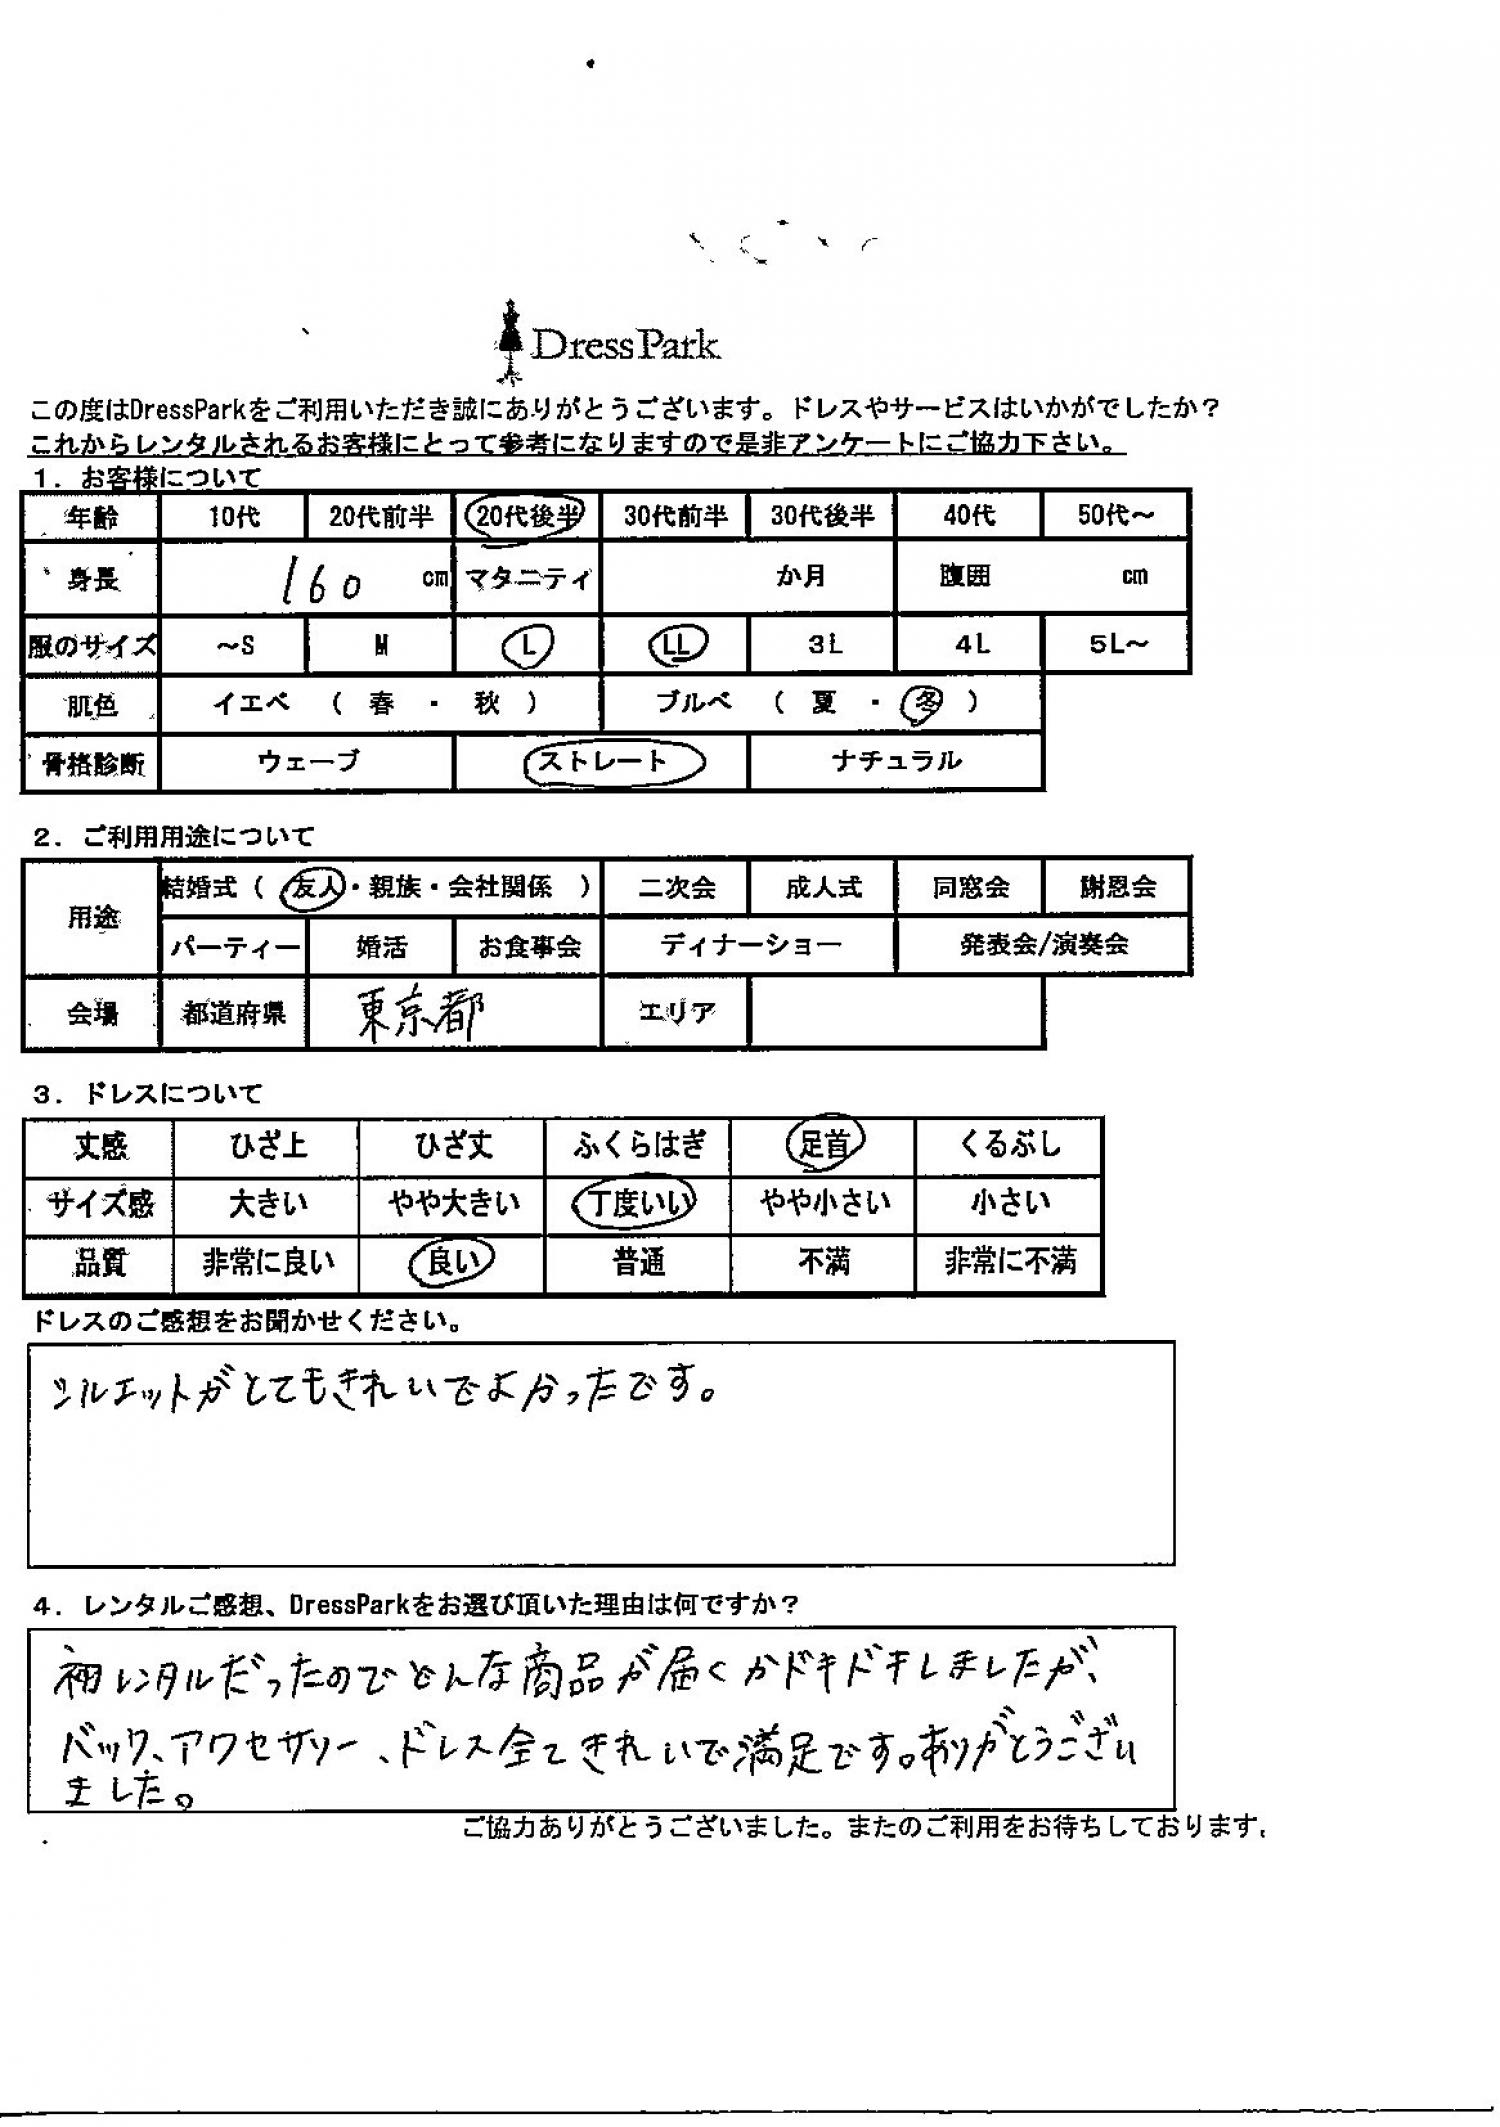 DressPark
この度はDressParkをご利用いただき誠にありがとうございます。ドレスやサービスはいかがでしたか？
これからレンタルされるお客様にとって参考になりますので是非アンケートにご協力下さい。
１．お客様について
年齢 10代 20代前半 20代後半 30代前半 30代後半 40代 50代～
身長 160 cm マタニティ か月 腹囲 cm
服のサイズ ～S M L LL 3L 4L 5L～
肌色 イエベ （ 春 ・ 秋 ） ブルベ （ 夏 ・ 冬 ）
骨格診断 ウェーブ ストレート ナチュラル
２．ご利用用途について
用途 結婚式（ 友人・親族・会社関係 ） 二次会 成人式 同窓会 謝恩会
パーティー 婚活 お食事会 ディナーショー 発表会/演奏会
会場 都道府県 東京都 エリア
３．ドレスについて
丈感 ひざ上 ひざ丈 ふくらはぎ 足首 くるぶし
サイズ感 大きい やや大きい 丁度いい やや小さい 小さい
品質 非常に良い 良い 普通 不満 非常に不満
ドレスのご感想をお聞かせください。
シルエットがとてもきれいでよかったです。
４．レンタルご感想、DressParkをお選び頂いた理由は何ですか？
初レンタルだったのでどんな商品が届くかドキドキしましたが、
バック、アクセサリー、ドレス全てきれいで満足です。ありがとうござい
ました。
ご協力ありがとうございました。またのご利用をお待ちしております。